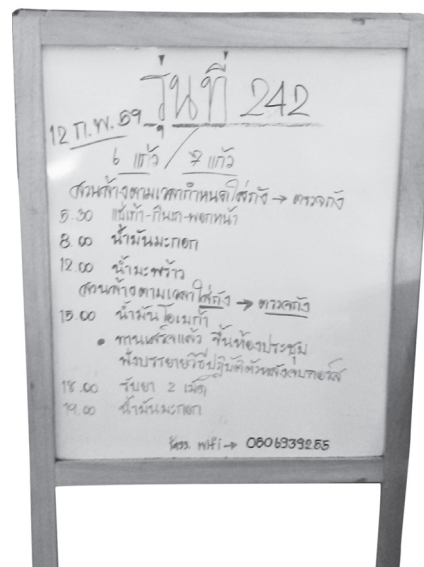 รุ่นที่ 242
12 ก.พ. 59
6 แก้ว / 7 แก้ว
สวนล้างตามเวลากำหนดใส่ถัง → ตรวจถัง
5.30 แช่เท้า-กินเกา-พอกหน้า
8.00 น้ำมันมะกอก
12.00 น้ำมะพร้าว
สวนล้างตามเวลาใส่ถัง → ตรวจถัง
15.00 น้ำมันโอเมก้า
• ทานเสร็จแล้ว ขึ้นห้องประชุม
ฟังบรรยายวิธีปฏิบัติตัวหลังจบคอร์ส
18.00 รับยา 2 เม็ด
19.00 น้ำมันมะกอก
wifi → 0806939255